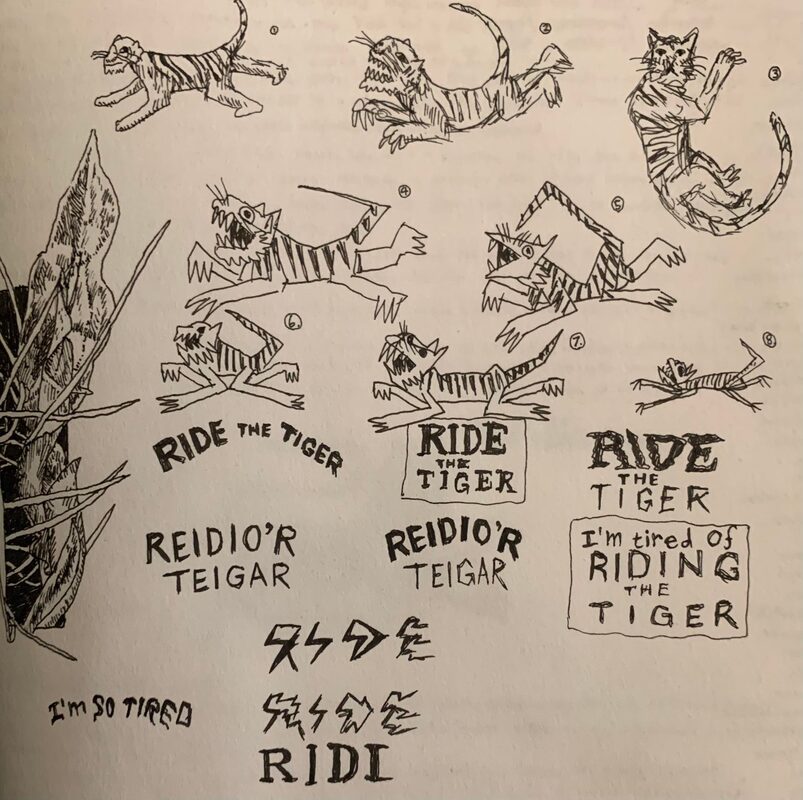 1
2
3
4
5
6.
7.
8.
RIDE THE TIGER
RIDE
THE
TIGER
RIDE
THE
TIGER
REIDIO'R
TEIGAR
REIDIO'R
TEIGAR
I'm tired of
RIDING
THE
TIGER
RIDE
I'm SO TIRED
RIDE
RIDI